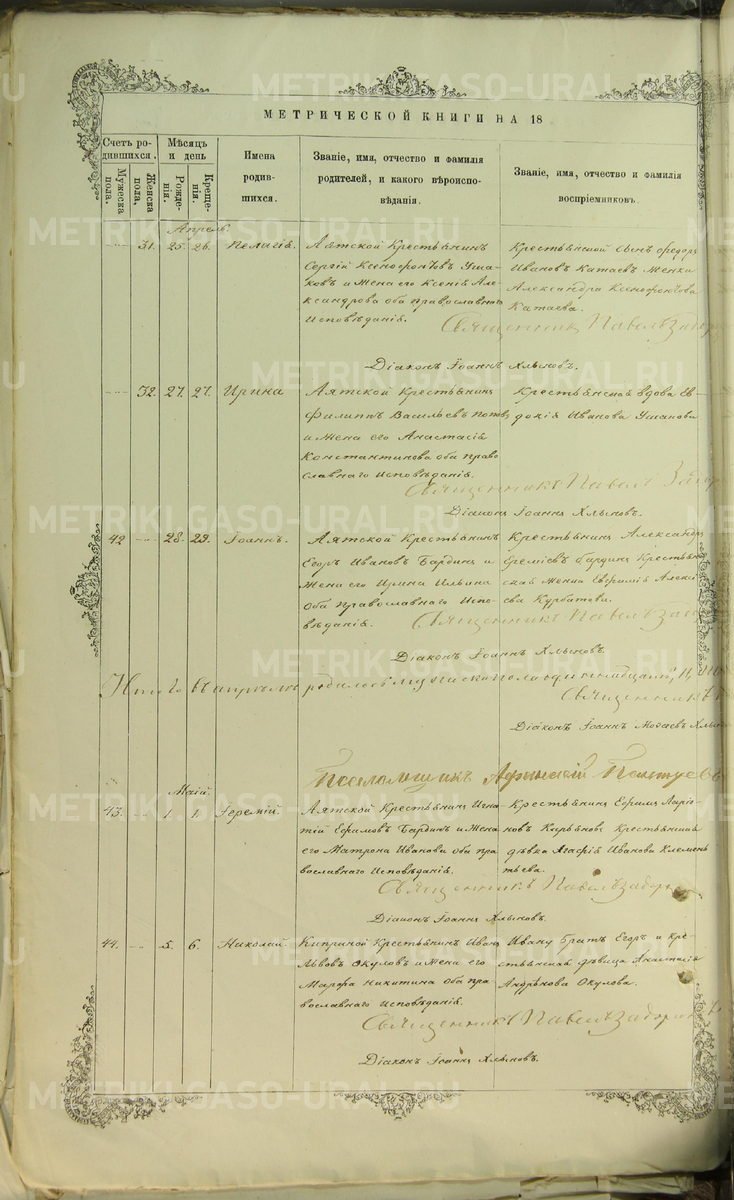 МЕТРИЧЕСКОЙ КНИГИ НА 18
Счетъ ро-
дившихся.
Мужеска
пола.
Женска
пола.
Мѣсяцъ
и день
Рожде-
нія.
Креще-
нія.
Имена
родив-
шихся.
Званіе, имя, отчество и фамилія
родителей, и какого вѣроиспо-
вѣданія.
Званіе, имя, отчество и фамилія
воспріемниковъ.
Апрель
31. 25. 26. Пелагія.
Аятской Крестьянинъ
Сергій Ксенофонтовъ Уша-
ковъ и жена его Ксенія Але-
ксандрова оба православнаго
Исповѣданія.
Крестьянской сынъ Федоръ
Ивановъ Катаевъ женка
Александра Ксенофонтова
Катаева.
Священникъ Павелъ
Діаконъ Іоаннъ Хлыновъ.
32. 27. 27. Ирина
Аятской Крестьянинъ
Филиппъ Васильевъ
и жена его Анастасія
Константинова оба право
славнаго Исповѣданія.
Крестьянская вдова Ев-
докія Иванова Ушакова
Священникъ Павелъ
Діаконъ Іоаннъ Хлыновъ.
42 28. 29. Іоаннъ.
Аятской Крестьянинъ
Егоръ Ивановъ Бардинъ и
жена его Ирина Ильина
Оба православнаго Испо-
вѣданія.
Крестьянинъ Александръ
Бардинъ Крестьян
ская женка Евфимія Алексі
ева Курбатова.
Священникъ Павелъ
Діаконъ Іоаннъ Хлыновъ.
Итого въ апрѣлѣ родилось мужеска пола одиннадцать, 11,
Священникъ
Діаконъ Іоаннъ Хлы
Псаломщикъ
Маій
43. 1. 1. Іеремій.
Аятской Крестьянинъ Игна
тій Ефимовъ Бардинъ и жена
его Матрона Иванова оба пра
вославнаго Исповѣданія.
Крестьянинъ Ефимъ Ларіо
новъ Крестьянская
дѣвка Агафія Иванова Клемень
тьева.
Священникъ Павелъ
Діаконъ Іоаннъ Хлыновъ.
44. 5. 6. Николай.
Крестьянинъ Иванъ
Львовъ Окуловъ и жена его
Марфа Никитина Оба пра
вославнаго Исповѣданія.
Ивану братъ Егоръ и Кре-
стьянская дѣвица Анастасія
Окулова.
Священникъ Павелъ
Діаконъ Іоаннъ Хлыновъ.
METRIKI.GASO-URAL.RU